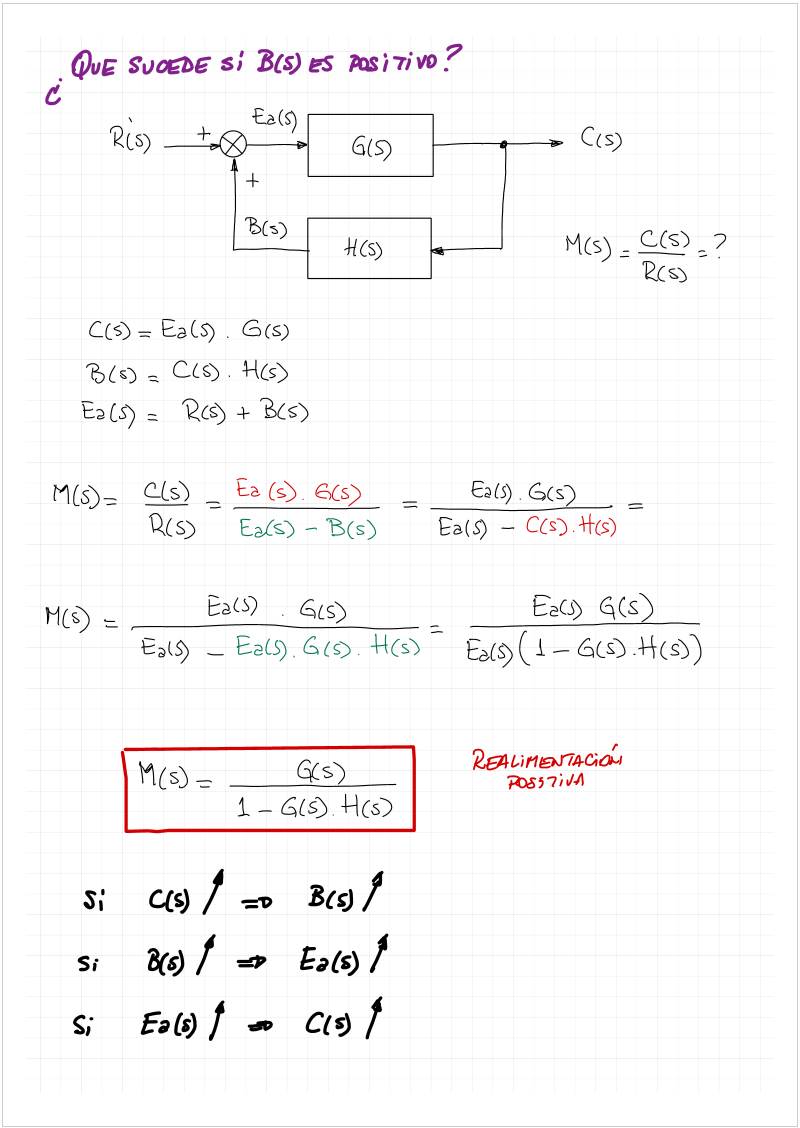 ¿ QUE SUCEDE Si B(s) ES POSiTiVO?
R(s) + Ea(s) G(s) C(s)
+
B(s) H(s) M(s) = C(s)/R(s) = ?
C(s) = Ea(s) . G(s)
B(s) = C(s) . H(s)
Ea(s) = R(s) + B(s)
M(s) = C(s)/R(s) = Ea(s) . G(s)/Ea(s) - B(s) = Ea(s) . G(s)/Ea(s) - C(s) . H(s) =
M(s) = Ea(s) . G(s)/Ea(s) - Ea(s) . G(s) . H(s) = Ea(s) G(s)/Ea(s)(1 - G(s) . H(s))
M(s) = G(s)/1 - G(s) . H(s)
REALiMENTACIÓN
POSSTiVA
Si C(s) ↗ ⇒ B(s) ↗
Si B(s) ↗ ⇒ Ea(s) ↗
Si Ea(s) ↗ ⇒ C(s) ↗